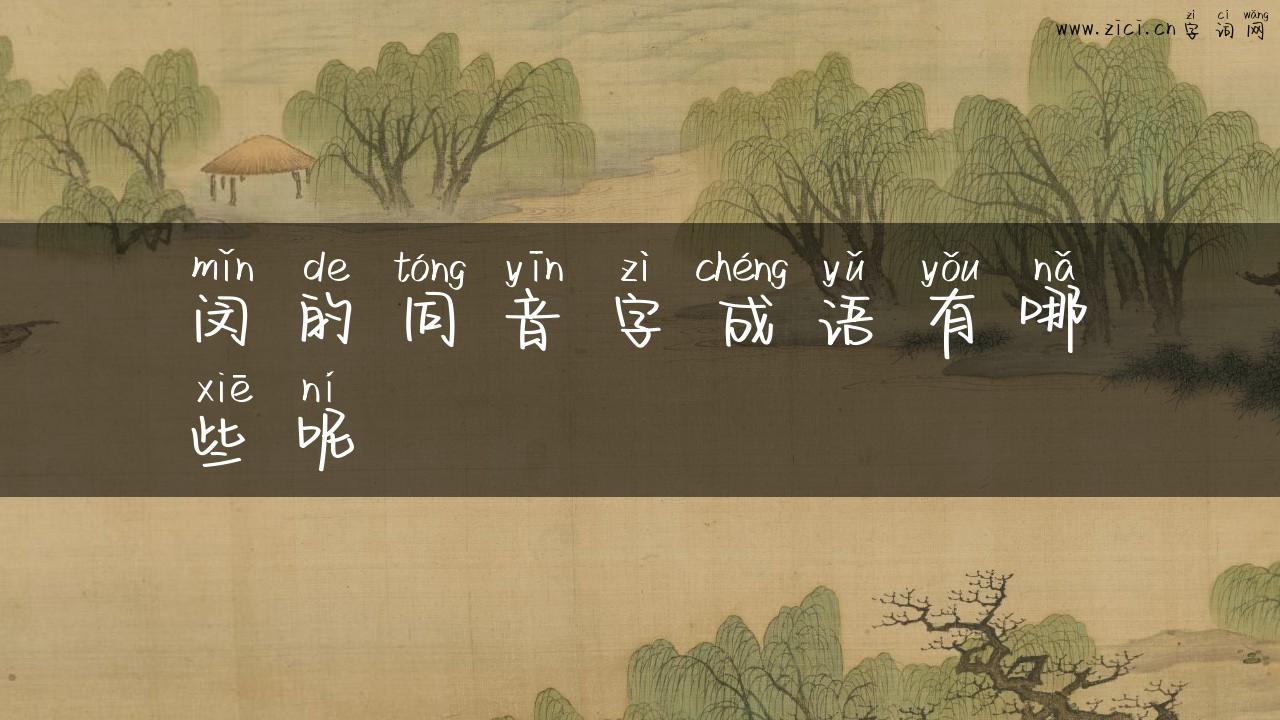 zì cí wǎng
www.zici.cn 字词网
mǐn de tóng yīn zì chéng yǔ yǒu nǎ
闵的同音字成语有哪
xiē ní
些呢